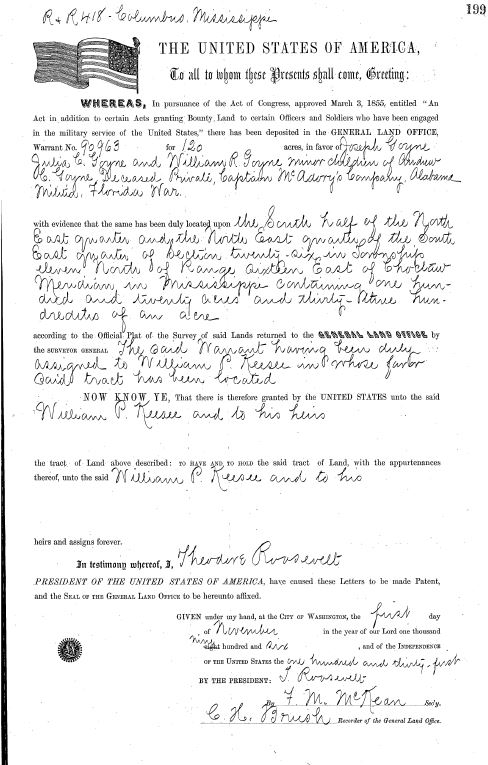 199
R & R 418 - Columbus, Mississippi
THE UNITED STATES OF AMERICA,
To all to whom these Presents shall come, Greeting:
WHEREAS, In pursuance of the Act of Congress, approved March 3, 1855, entitled "An
Act in addition to certain Acts granting Bounty Land to certain Officers and Soldiers who have been engaged
in the military service of the United States," there has been deposited in the GENERAL LAND OFFICE,
Warrant No. 90963 for 120 acres, in favor of Joseph Goyne
Julia C. Goyne and William R. Goyne minor children of Andrew
C. Goyne, Deceased Private, Captain McAdory's Company, Alabama
Militia, Florida War.
with evidence that the same has been duly located upon the South half of the North
East quarter and the North East quarter of the South
East quarter of Section twenty-six in Township
eleven North of Range sixteen East of Choctaw
Meridian in Mississippi containing one hun-
dred and twenty acres and thirty-three hun-
dredths of an acre
according to the Official Plat of the Survey of said Lands returned to the GENERAL LAND OFFICE by
the SURVEYOR GENERAL The said Warrant having been duly
assigned to William P. Keesee in whose favor
said tract has been located
NOW KNOW YE, That there is therefore granted by the UNITED STATES unto the said
William P. Keesee and to his heirs
the tract of Land above described: TO HAVE AND TO HOLD the said tract of Land, with the appurtenances
thereof, unto the said William P. Keesee and to his
heirs and assigns forever.
In testimony whereof, I, Theodore Roosevelt
PRESIDENT OF THE UNITED STATES OF AMERICA, have caused these Letters to be made Patent,
and the SEAL OF THE GENERAL LAND OFFICE to be hereunto affixed.
GIVEN under my hand, at the CITY OF WASHINGTON, the first day
of November in the year of our Lord one thousand
nine
eight hundred and six, and of the INDEPENDENCE
OF THE UNITED STATES the one hundred and thirty-first
BY THE PRESIDENT: T. Roosevelt
By F. M. McKean Sec'y.
C. H. Brush Recorder of the General Land Office.